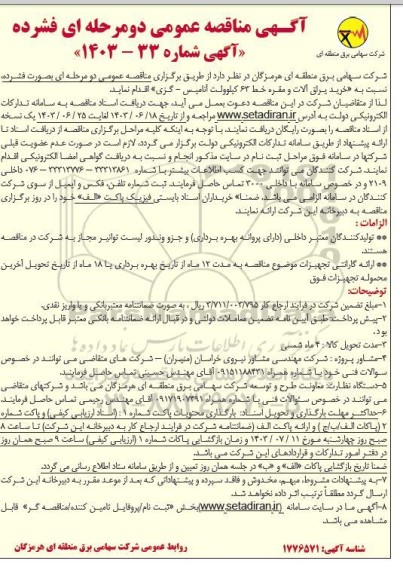 آگهی مناقصه عمومی دومرحله ای فشرده
«آگهی شماره ۳۳ - ۱۴۰۳»
شرکت سهامی برق منطقه ای
شرکت سهامی برق منطقه ای هرمزگان در نظر دارد از طریق برگزاری مناقصه عمومی دو مرحله ای بصورت فشرده،
نسبت به «خرید یراق آلات و مقره خط ۶۳ کیلوولت آنامیس - گزی» اقدام نماید.
لذا از متقاضیان شرکت در این مناقصه دعوت بعمل می آید، جهت دریافت اسناد مناقصه به سامانه تدارکات
الکترونیکی دولت به آدرس www.setadiran.ir مراجعه و از تاریخ ۱۸ / ۰۶ / ۱۴۰۳ لغایت ۲۵ / ۰۶ / ۱۴۰۳ یک نسخه
از اسناد مناقصه را بصورت رایگان دریافت نمایند. با توجه به اینکه کلیه مراحل برگزاری مناقصه از دریافت اسناد تا
ارائه پیشنهاد از طریق سامانه تدارکات الکترونیکی دولت برگزار می گردد، لازم است در صورت عدم عضویت قبلی
شرکتها در سامانه فوق مراحل ثبت نام در سایت مذکور انجام و نسبت به دریافت گواهی امضا الکترونیکی اقدام
نمایند. شرکت کنندگان می توانند جهت کسب اطلاعات بیشتر با شماره ۳۳۳۱۳۸۶۱ - ۳۳۳۱۳۷۷۶ - ۰۷۶ داخلی
۲۱۰۹ و در خصوص سامانه با داخلی ۳۰۰۰ تماس حاصل فرمایند. ثبت شماره تلفن، فکس و ایمیل از سوی شرکت
کنندگان در سامانه الزامی می باشد. ضمناً خریداران اسناد بایستی فیزیک پاکت «الف» خود را در روز برگزاری
مناقصه به دبیرخانه این شرکت ارائه نمایند.
الزامات :
** تولیدکنندگان معتبر داخلی (دارای پروانه بهره برداری) و جزو وندور لیست توانیر مجاز به شرکت در مناقصه
هستند.
** ارائه گارانتی تجهیزات موضوع مناقصه به مدت ۱۲ ماه از تاریخ بهره برداری یا ۱۸ ماه از تاریخ تحویل آخرین
محموله تجهیزات فوق
توضیحات:
۱-مبلغ تضمین شرکت در فرایند ارجاع کار ۳/۷۱۱/۰۰۳/۷۹۵ ریال ، به صورت ضمانتنامه معتبربانکی و یا واریز نقدی.
۲-پیش پرداخت: طبق آیین نامه تضمین معاملات دولتی و در قبال ارائه ضمانتنامه بانکی معتبر قابل پرداخت خواهد
بود.
۳-مدت تحویل کالا : ۴ ماه شمسی
۴-مشاور پروژه : شرکت مهندسی مشاور نیروی خراسان (منیران) – شرکت های متقاضی می توانند در خصوص
سوالات فنی خود با شماره همراه ۰۹۱۵۱۱۸۸۴۳۱ آقای مهندس حسینی تماس حاصل فرمایند.
۵-دستگاه نظارت: معاونت طرح و توسعه شرکت سهامی برق منطقه ای هرمزگان می باشد و شرکتهای متقاضی
می توانند در خصوص سئوالات فنی با شماره همراه ۰۹۱۷۱۹۰۷۴۹۱ آقای مهندس رحیمی تماس حاصل فرمایند.
۶-حداکثر مهلت بارگذاری و تحویل اسناد: بارگذاری محتویات پاکت شماره ۱ : (اسناد ارزیابی کیفی) و پاکت شماره
۲ (پاکات الف/ب/ج ) و ارائه پاکت الف (ضمانتنامه شرکت در فرایند ارجاع کار به دبیرخانه این شرکت) تا ساعت ۸
صبح روز چهارشنبه مورخ ۱۱ / ۰۷ / ۱۴۰۳ و زمان بازگشایی پاکات شماره ۱ (ارزیابی کیفی) ساعت ۹ صبح همان روز
در دفتر امور تدارکات و قراردادهای این شرکت می باشد.
ضمنا تاریخ بازگشایی پاکات «الف» و «ب» در جلسه همان روز تعیین و از طریق سامانه ستاد اطلاع رسانی می گردد.
۷-به پیشنهادات مشروط، مبهم، مخدوش و فاقد سپرده و پیشنهاداتی که بعد از موعد مقرر به دبیرخانه این شرکت
ارسال گردد مطلقاً ترتیب اثر داده نخواهد شد.
۸-آگهی ما در سایت سامانه www.setadiran.ir(بخش «ثبت نام/پروفایل تامین کننده/مناقصه گر» قابل
مشاهده می باشد.
شناسه آگهی: ۱۷۷۶۵۷۱
روابط عمومی شرکت سهامی برق منطقه ای هرمزگان